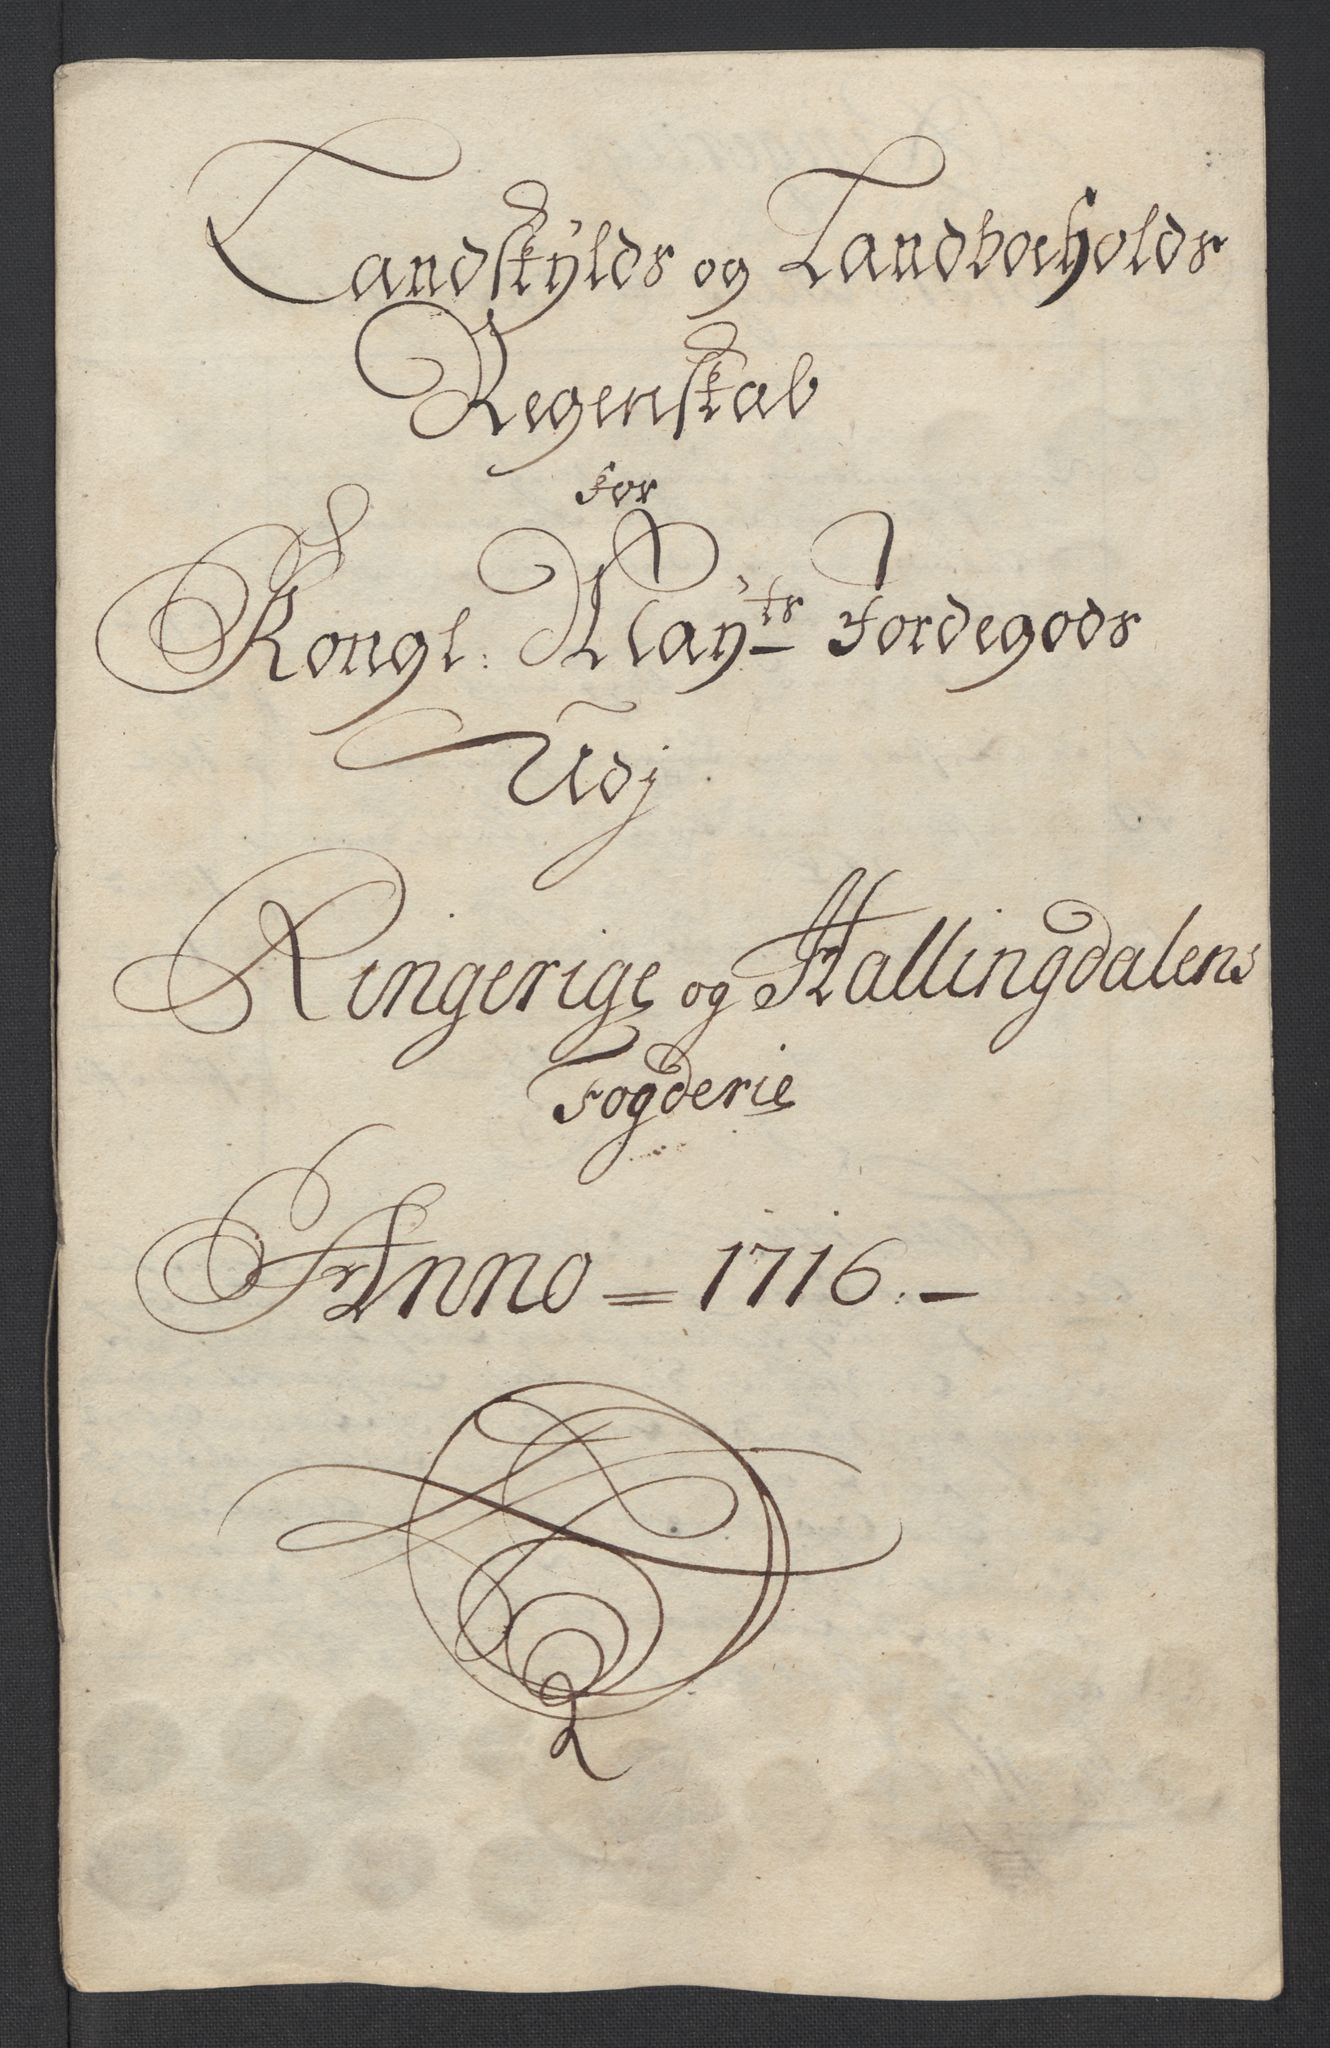 Landskÿlds og Landboeholds
Regenskab
for
Kongl: Maÿts Jordegods
Udj
Ringerige og Hallingdalens
Fogderie
Anno = 1716 :-